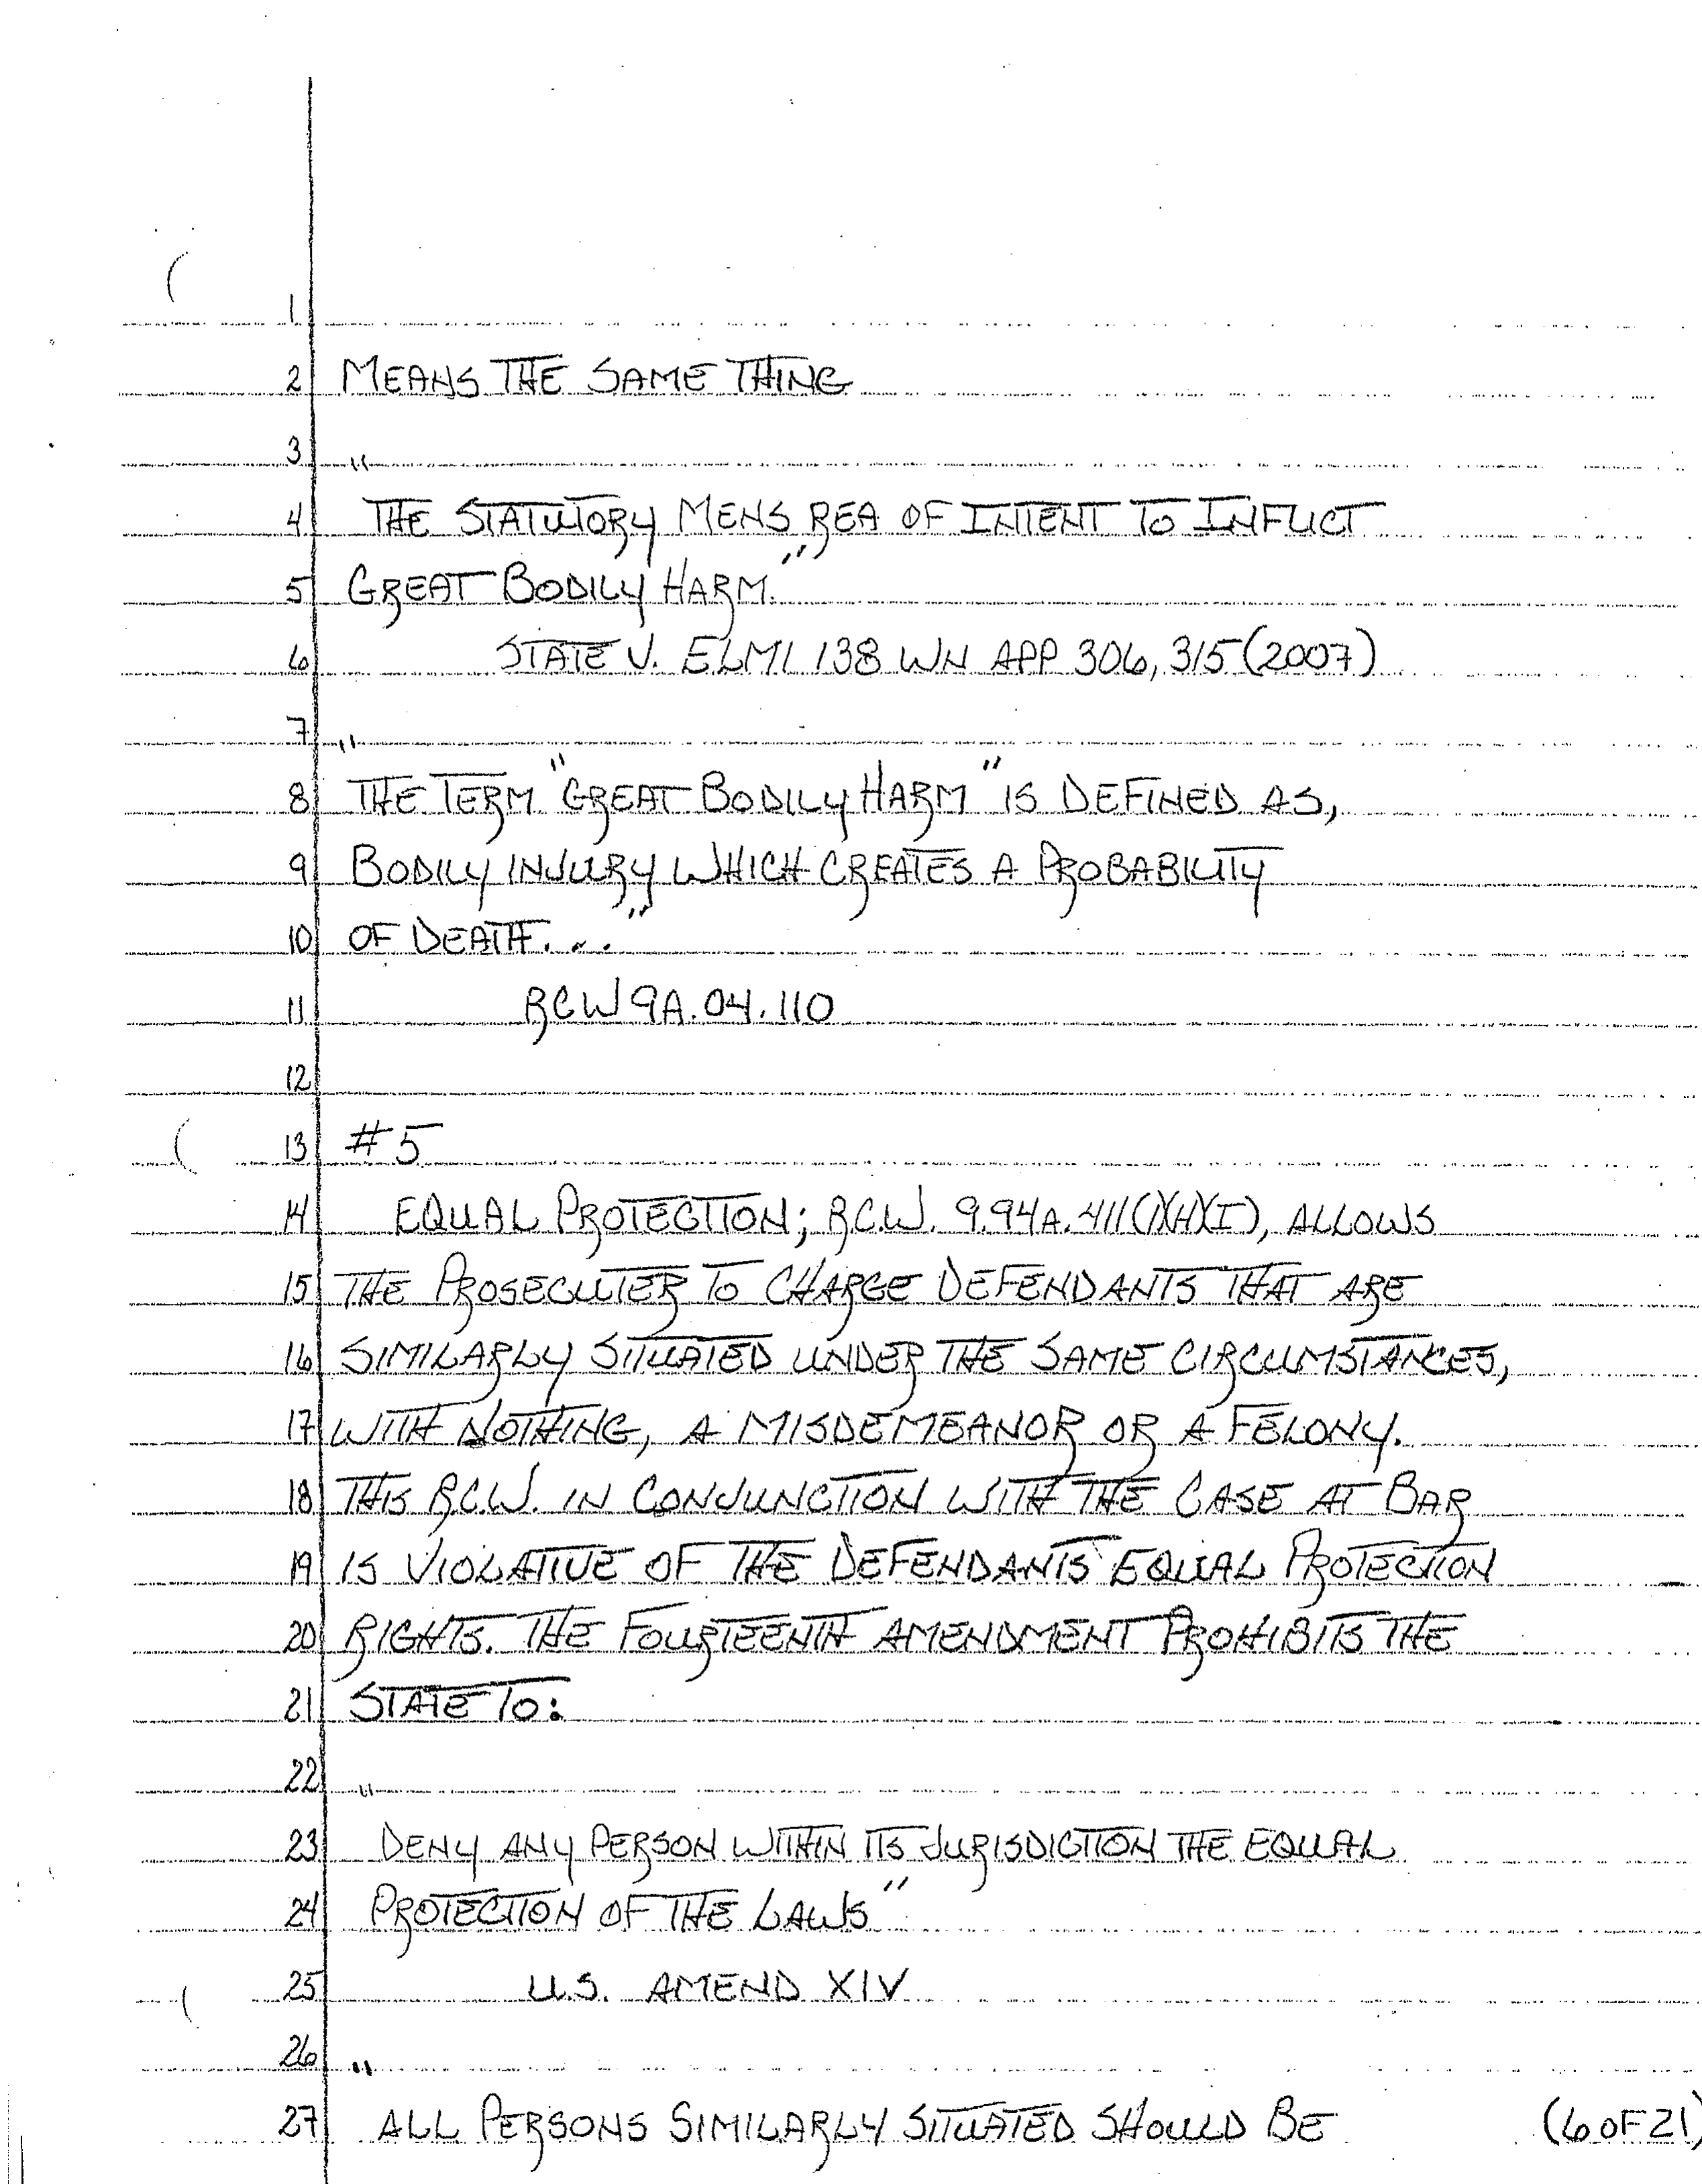 1
2 MEANS THE SAME THING
3 "
4 THE STATUTORY MENS REA OF INTENT TO INFLICT
5 GREAT BODILY HARM."
6 STATE V. ELMI 138 WN APP 306, 315 (2007)
7 "
8 THE TERM "GREAT BODILY HARM" IS DEFINED AS,
9 BODILY INJURY WHICH CREATES A PROBABILITY
10 OF DEATH. . . "
11 RCW 9A.04.110
12
13 #5
14 EQUAL PROTECTION; R.C.W. 9.94A.411(1)(H)(I), ALLOWS
15 THE PROSECUTER TO CHARGE DEFENDANTS THAT ARE
16 SIMILARLY SITUATED UNDER THE SAME CIRCUMSTANCES,
17 WITH NOTHING, A MISDEMEANOR OR A FELONY.
18 THIS R.C.W. IN CONJUNCTION WITH THE CASE AT BAR
19 IS VIOLATIVE OF THE DEFENDANTS EQUAL PROTECTION
20 RIGHTS. THE FOURTEENTH AMENDMENT PROHIBITS THE
21 STATE TO:
22 "
23 DENY ANY PERSON WITHIN ITS JURISDICTION THE EQUAL
24 PROTECTION OF THE LAWS"
25 U.S. AMEND XIV
26 "
27 ALL PERSONS SIMILARLY SITUATED SHOULD BE (6 OF 21)